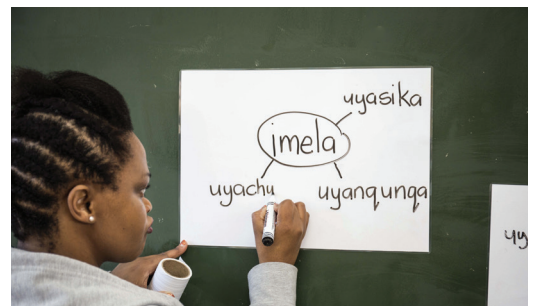 uyasika
imela
uyachu uyanqunqa
uy